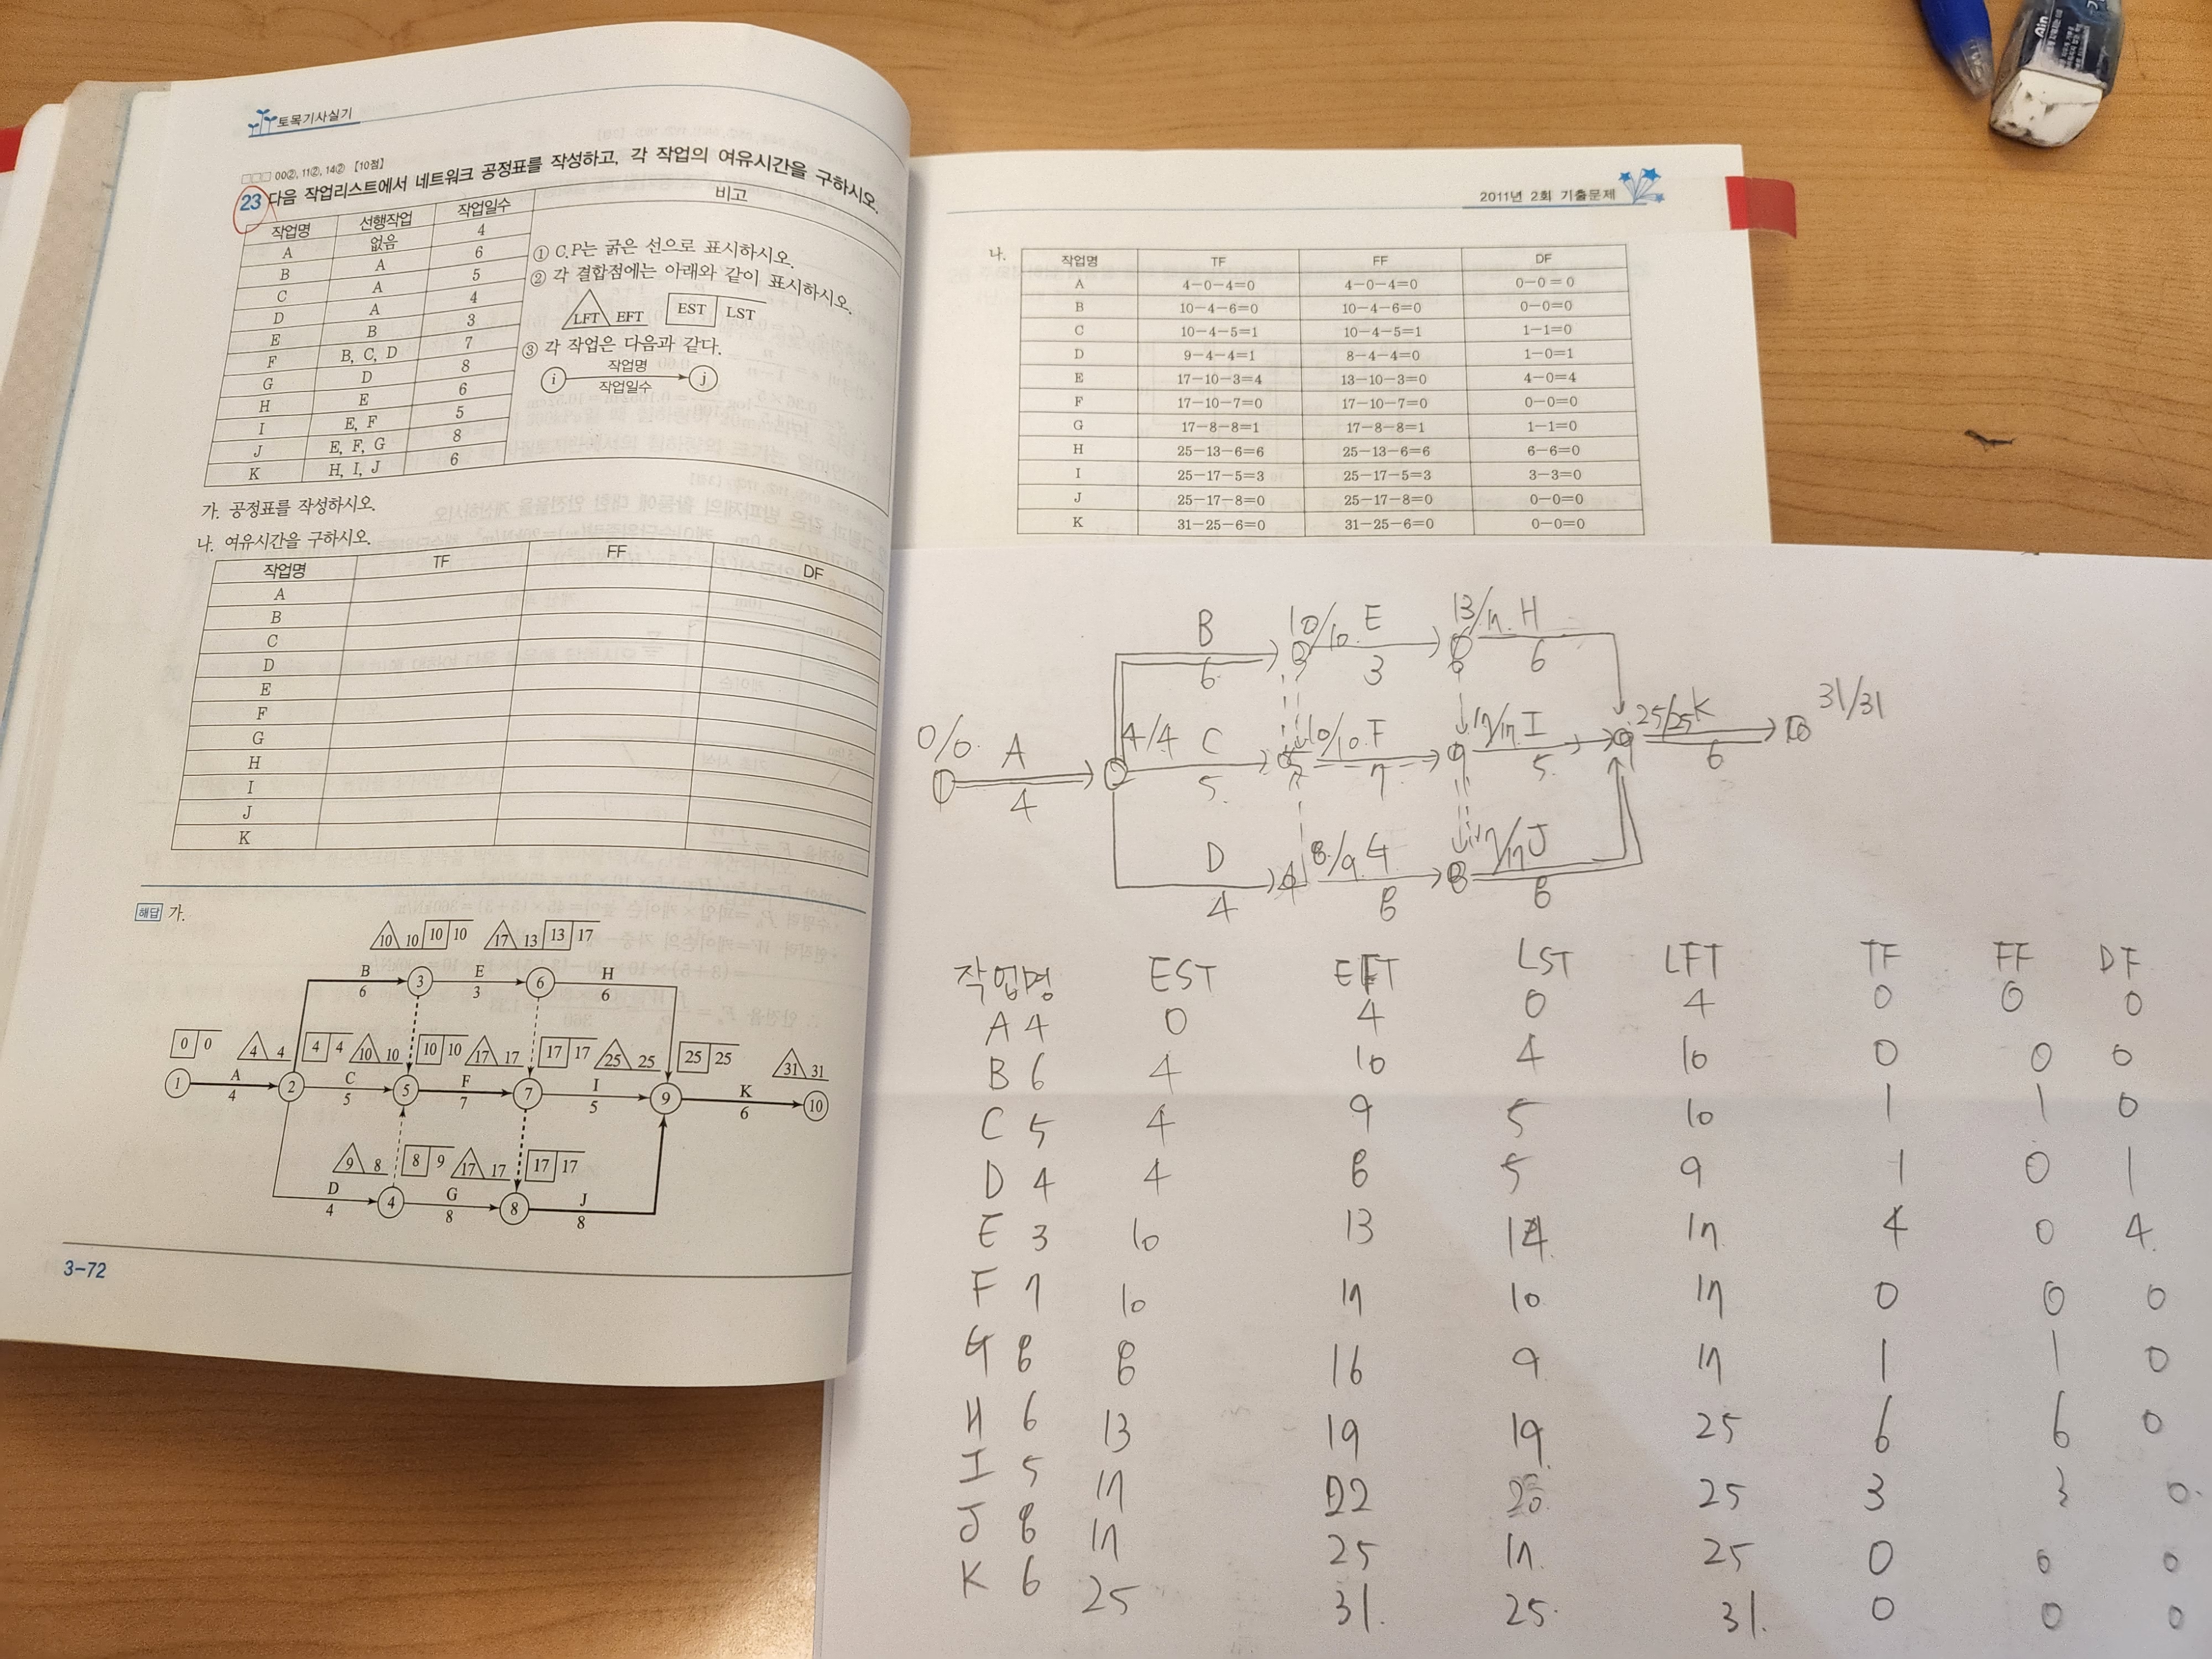 토목기사실기
□□□ 00②, 11②, 14② [10점]
23 다음 작업리스트에서 네트워크 공정표를 작성하고, 각 작업의 여유시간을 구하시오.
작업명 선행작업 작업일수 비고
A 없음 4
B A 6
C A 5
D A 4
E B 3
F B, C, D 7
G D 8
H E 6
I E, F 5
J E, F, G 8
K H, I, J 6
① C.P는 굵은 선으로 표시하시오.
② 각 결합점에는 아래와 같이 표시하시오.
LFT EFT EST LST
③ 각 작업은 다음과 같다.
i 작업명 j
작업일수
가. 공정표를 작성하시오.
나. 여유시간을 구하시오.
작업명 TF FF DF
A
B
C
D
E
F
G
H
I
J
K
해답 가.
10 10 10 10 17 13 13 17
B 3 E 6 H
6 3 6
0 0 4 4 4 4 10 10 10 10 17 17 17 17 25 25 25 25 31 31
1 A 2 C 5 F 7 I 9 K 10
4 5 7 5 6
9 8 8 9 17 17 17 17
D 4 G 8 J
4 8 8
3-72
2011년 2회 기출문제
나.
작업명 TF FF DF
A 4-0-4=0 4-0-4=0 0-0=0
B 10-4-6=0 10-4-6=0 0-0=0
C 10-4-5=1 10-4-5=1 1-1=0
D 9-4-4=1 8-4-4=0 1-0=1
E 17-10-3=4 13-10-3=0 4-0=4
F 17-10-7=0 17-10-7=0 0-0=0
G 17-8-8=1 17-8-8=1 1-1=0
H 25-13-6=6 25-13-6=6 6-6=0
I 25-17-5=3 25-17-5=3 3-3=0
J 25-17-8=0 25-17-8=0 0-0=0
K 31-25-6=0 31-25-6=0 0-0=0
B 10/10 E 13/17 H
6 3 3 6 6
0/0 A 4/4 C 10/10 F 17/17 I 25/25 K 31/31
1 4 2 5 5 7 7 5 9 6 10
D 8/9 G 17/17 J
4 4 8 8 8
작업명 EST EFT LST LFT TF FF DF
A 4 0 4 0 4 0 0 0
B 6 4 10 4 10 0 0 0
C 5 4 9 5 10 1 1 0
D 4 4 8 5 9 1 0 1
E 3 10 13 14 17 4 0 4
F 7 10 17 10 17 0 0 0
G 8 8 16 9 17 1 1 0
H 6 13 19 19 25 6 6 0
I 5 17 22 20 25 3 3 0
J 8 17 25 17 25 0 0 0
K 6 25 31 25 31 0 0 0
Ain